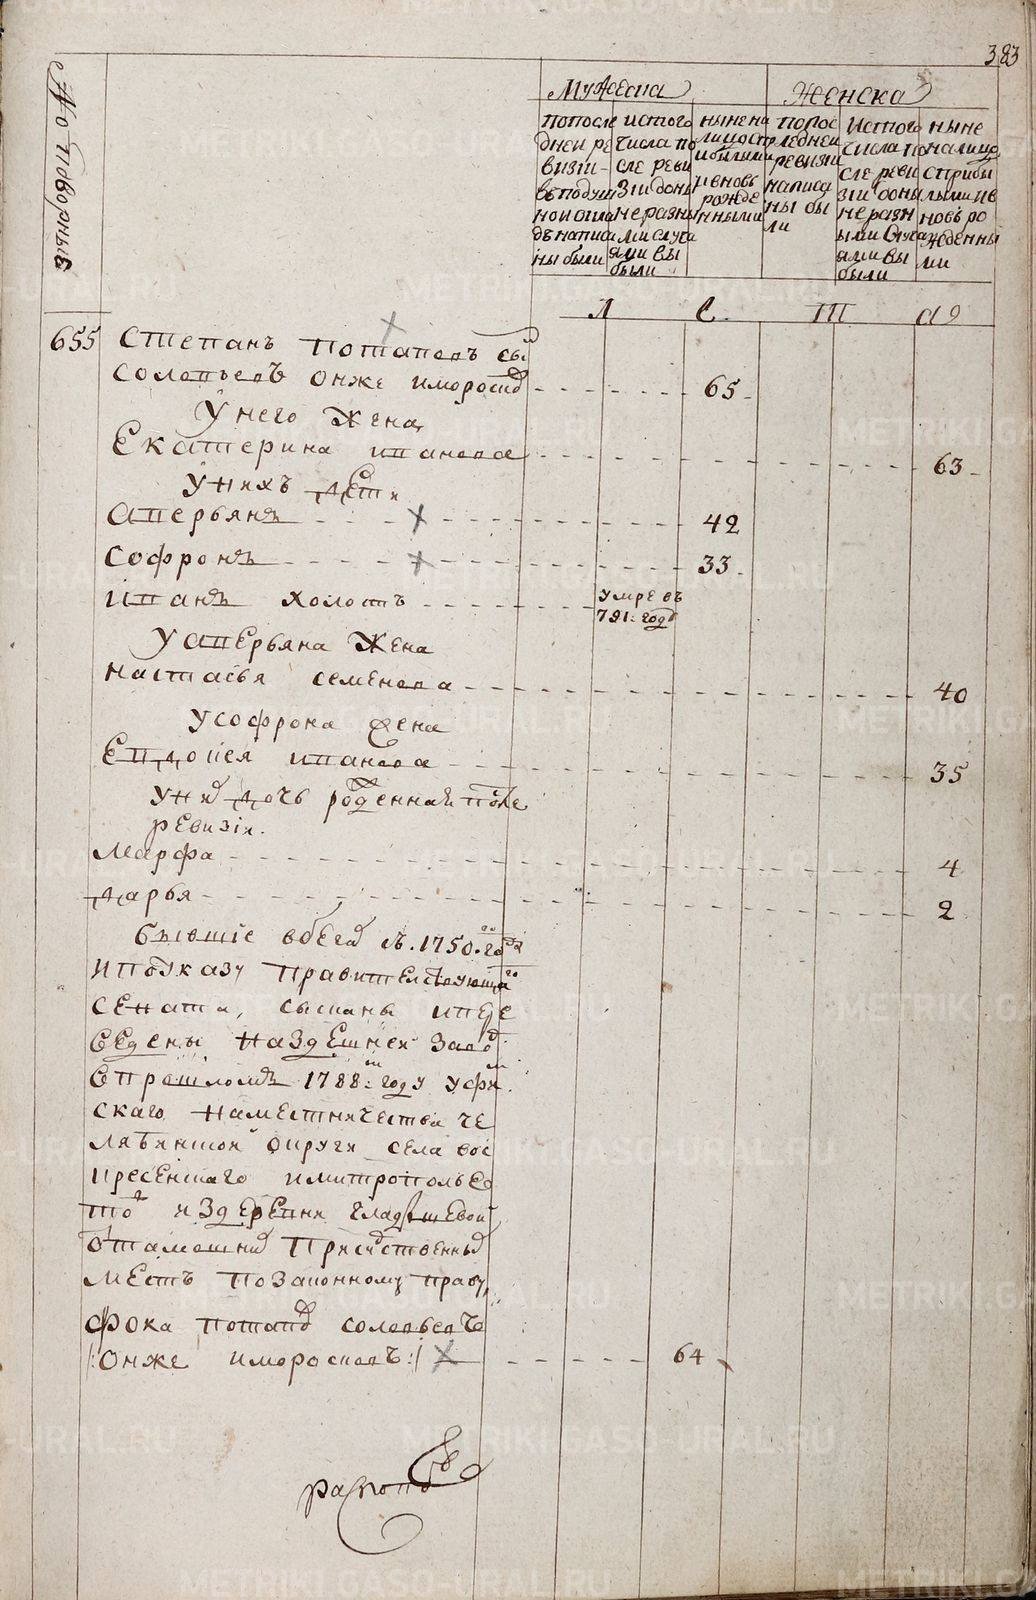 383
№ Подворные
Мужеска
Женска
попосле
дней ре
визiи
в подуш
ной окла
дъ написа
ны были
исгого
числа по
сле реви
зiи доны
не разны
ми случа
ями вы
были
ныне на
лицо стр
ибылыми
и вновь
рожде
нными
попос
ледней
ревизи
написа
ны бы
ли
исгого
числа по
сле реви
зiи доны
не разн
ыми случа
ями вы
были
ныне
налицо
с прибы
лыми и в
новь ро
жденны
ми
Л
Е
Ш
655 Степанъ Потаповъ сы
Соловьевъ онже иморосков
65
У него Жена
Екатерина иванова
63
У нихъ дети
Аверьянъ
42
Софронъ
33
Иванъ холостъ
умре въ
791: годъ
У аверьяна Жена
Настасья семенова
40
У софрона жена
Евдокея иванова
35
У них дочь рожденная после
ревизiи.
Марфа
4
Дарья
2
бывшiе вбегах съ 1750. года
ипоуказу правителствующаго
сената, сысканы ипере
ведены на здешней завод
Впрошломъ 1788: м году уфим
скаго наместничества че
лябинской округи села вос
кресенскаго имитрополье
то из деревни гладышевой
от тамошних присудственных
местъ по законному праву
Фока потапов соловьевъ
/:онже иморосковъ:/
64